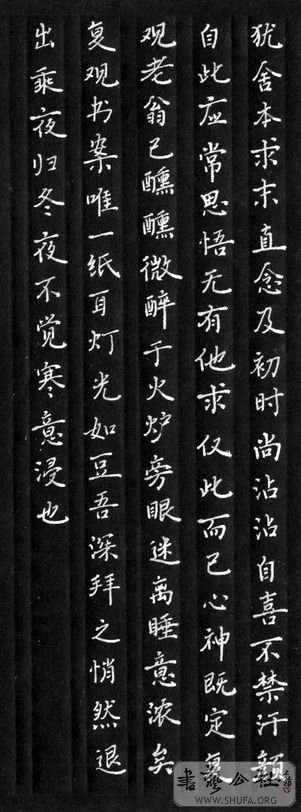 犹舍本求末直念及初时尚沾沾自喜不禁汗颜
自此应常思悟无有他求仅此而已心神既定复
观老翁已醺醺微醉于火炉旁眼迷离睡意浓矣
复观书案唯一纸耳灯光如豆吾深拜之悄然退
出乘夜归冬夜不觉寒意浸也
書艺公社
WWW.SHUFA.ORG